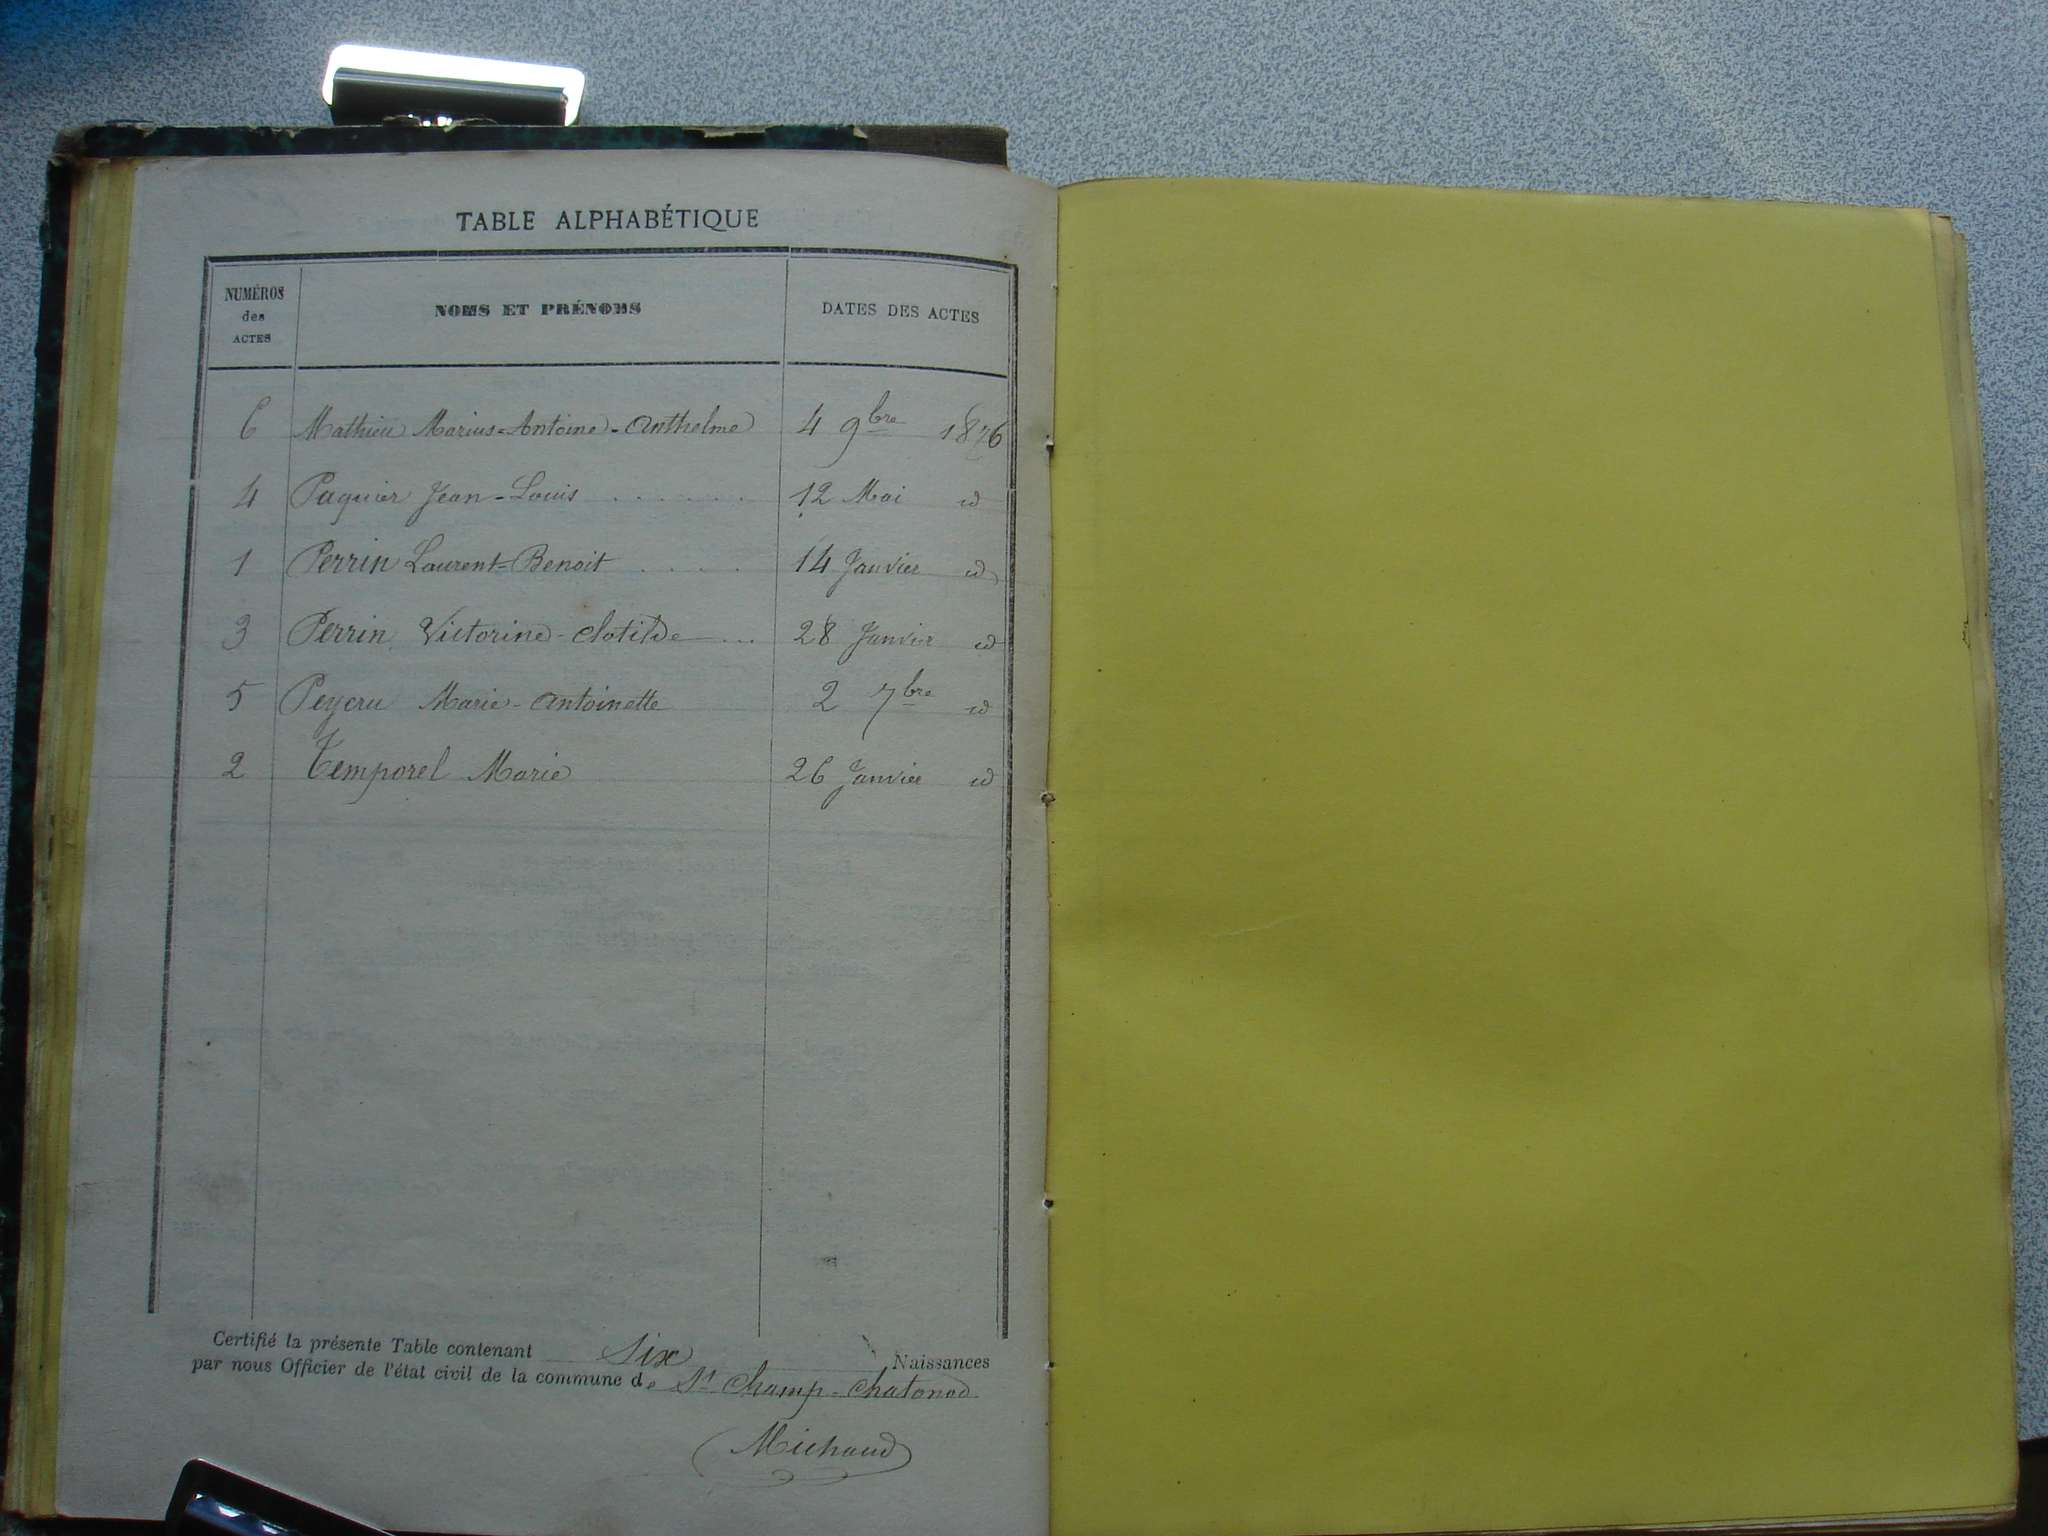 TABLE ALPHABÉTIQUE
NUMÉROS des ACTES NOMS ET PRÉNOMS DATES DES ACTES
6 Mathieu Marius-Antoine-Anthelme 4 9bre 1876
4 Paquier Jean-Louis . . . . . . 12 Mai id
1 Perrin Laurent-Benoit . . . . 14 Janvier id
3 Perrin Victorine-Clotilde ... 28 Janvier id
5 Peycru Marie-Antoinette 2 7bre id
2 Temporel Marie 26 Janvier id
Certifié la présente Table contenant Six Naissances
par nous Officier de l'état civil de la commune de St Champ-Chatonod
Michaud